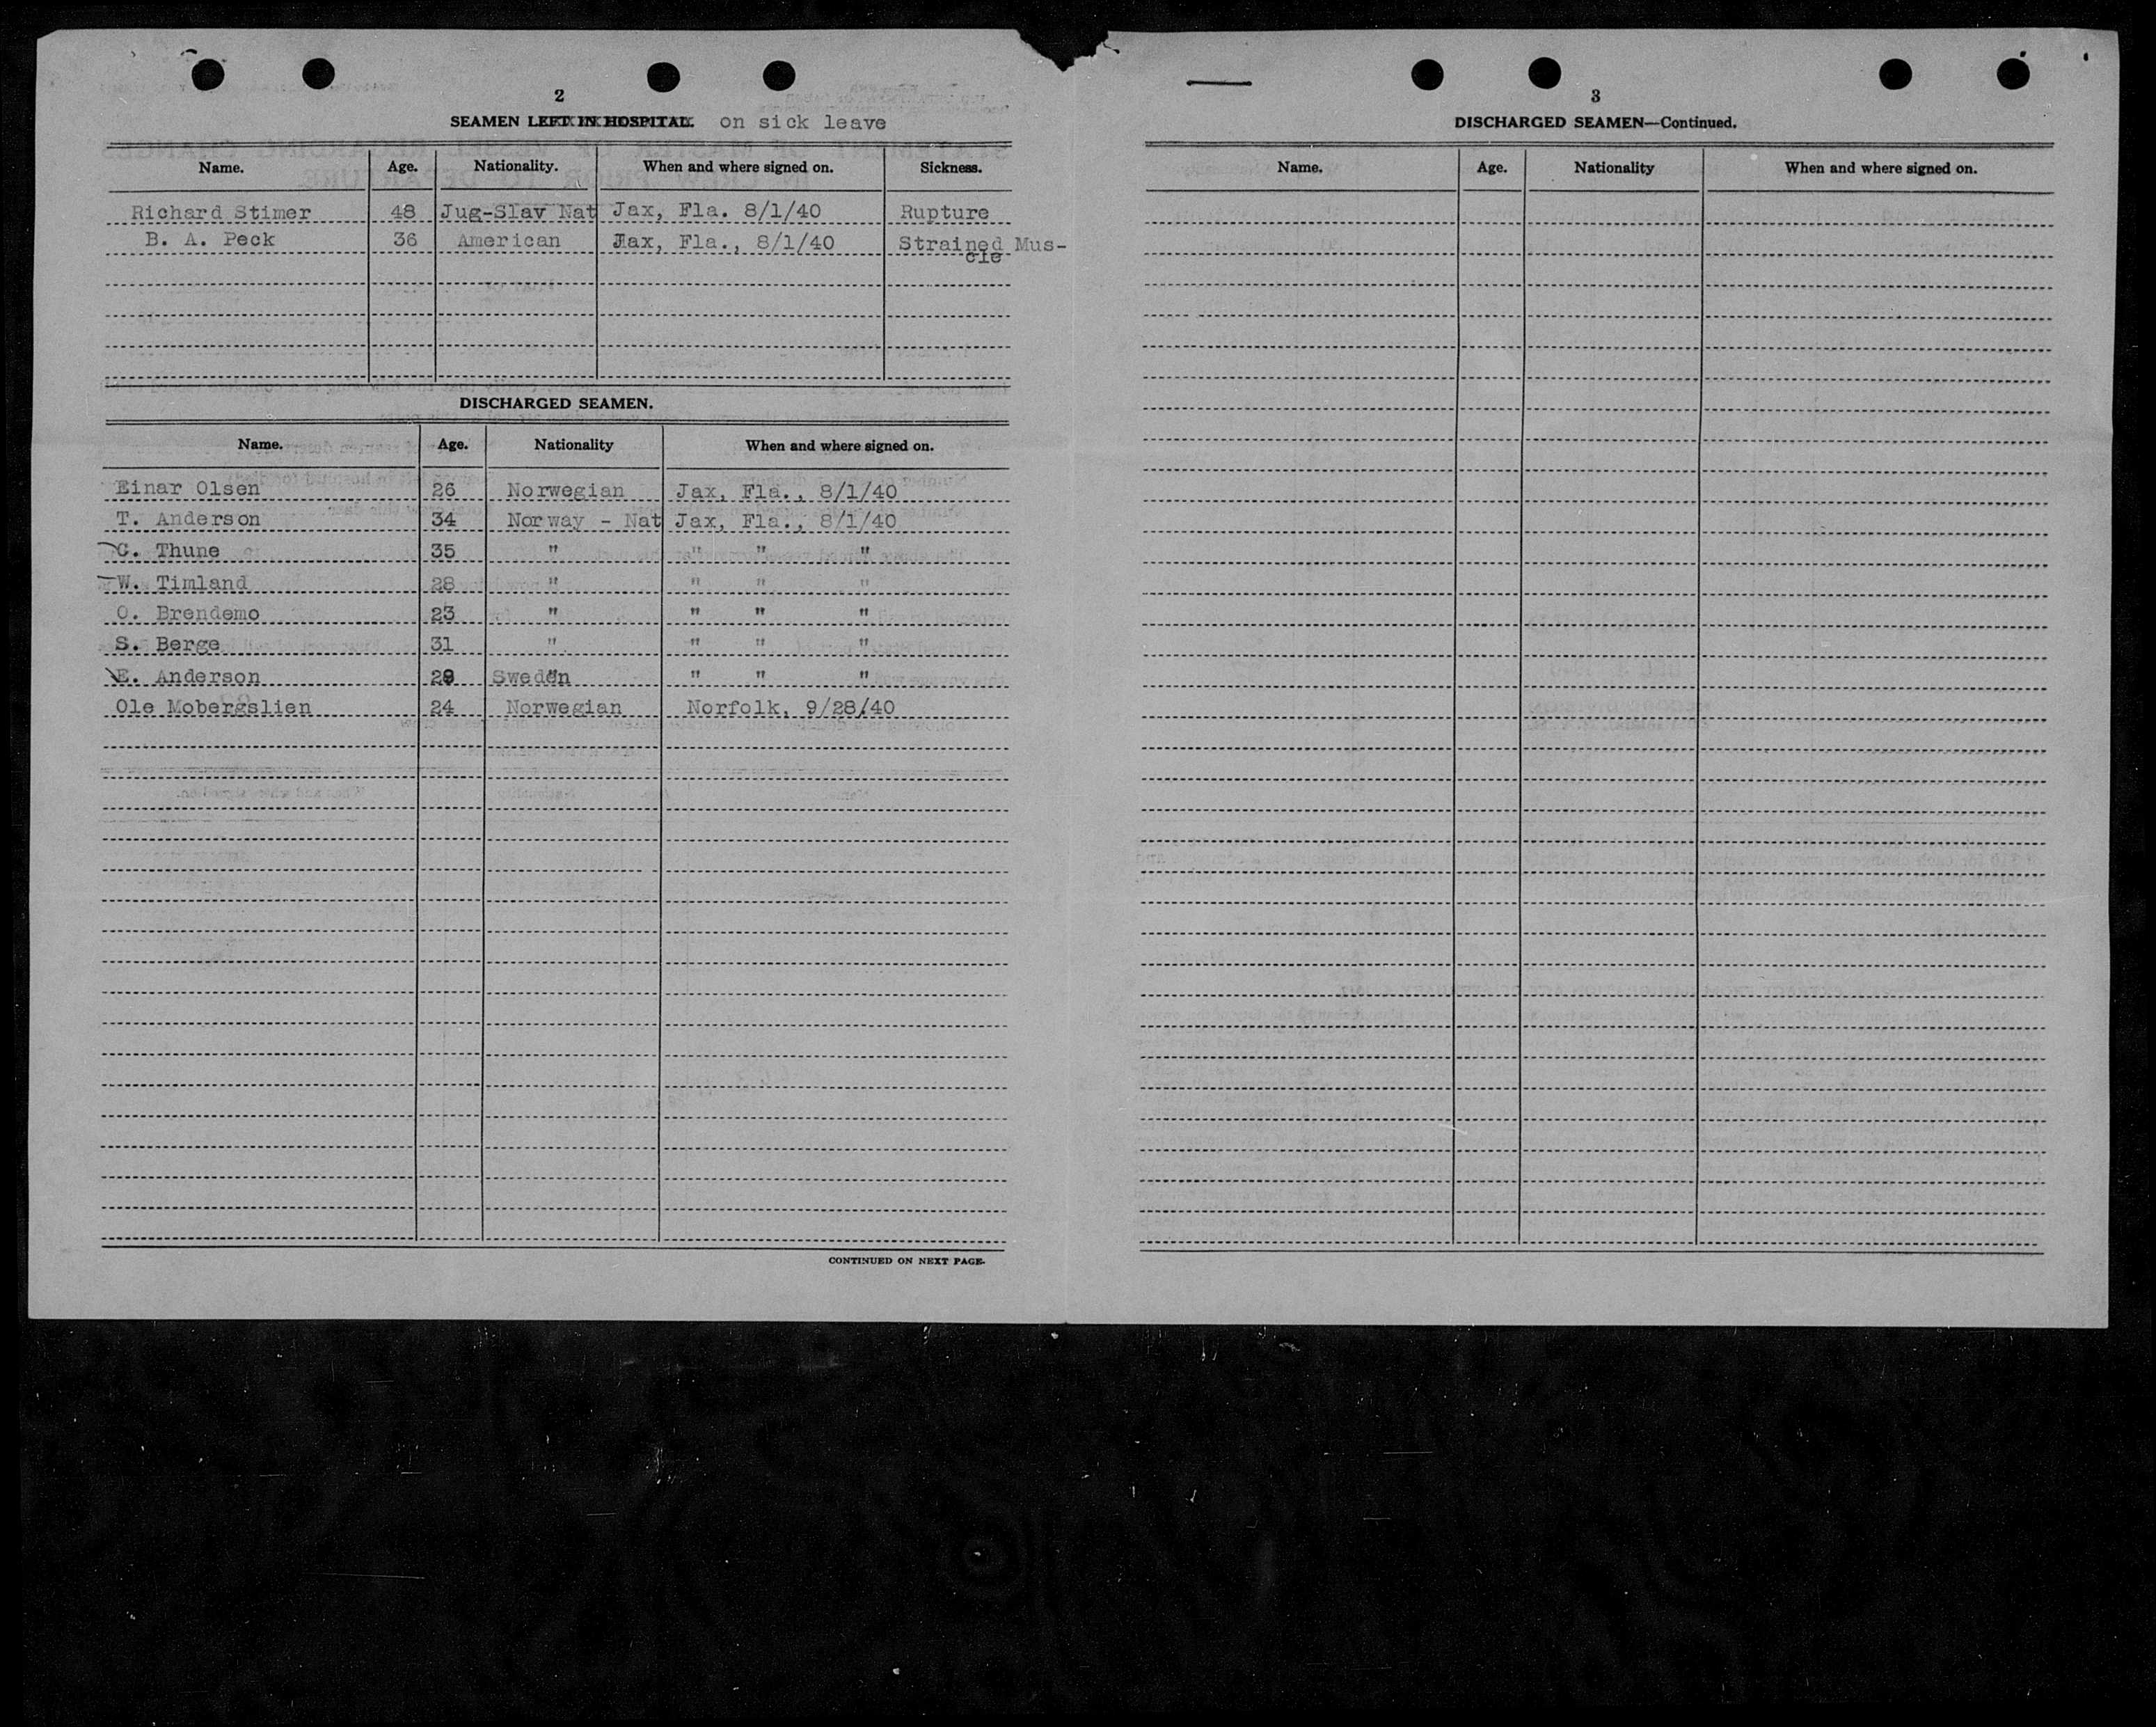 2
SEAMEN LEFT IN HOSPITAL. on sick leave
Name. Age. Nationality. When and where signed on. Sickness.
Richard Stimer 48 Jug-Slav Nat Jax, Fla. 8/1/40 Rupture
B. A. Peck 36 American Jax, Fla., 8/1/40 Strained Mus-
cle
DISCHARGED SEAMEN.
Name. Age. Nationality When and where signed on.
Einar Olsen 26 Norwegian Jax, Fla., 8/1/40
T. Anderson 34 Norway - Nat Jax, Fla., 8/1/40
C. Thune 35 " " " "
W. Timland 28 " " " "
O. Brendemo 23 " " " "
S. Berge 31 " " " "
E. Anderson 29 Sweden " " "
Ole Mobergslien 24 Norwegian Norfolk, 9/28/40
CONTINUED ON NEXT PAGE.
3
DISCHARGED SEAMEN—Continued.
Name. Age. Nationality When and where signed on.